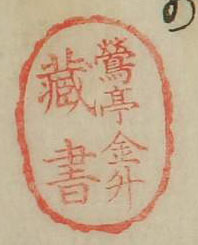 の
鶯亭金升
藏書